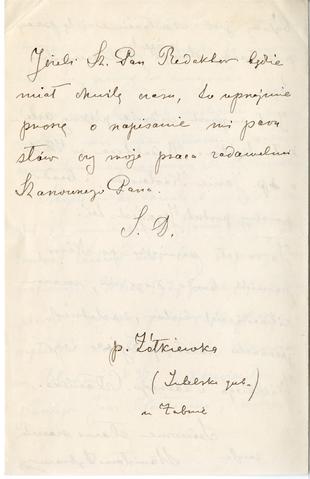 Jeżeli Sz. Pan Redaktor będzie
miał chwilę czasu, to uprzejmie
proszę o napisanie mi paru
słów czy moje praca zadawalnia
Szanownego Pana.
S. D.
p. Żółkiewka
(Lubelska gub.)
w